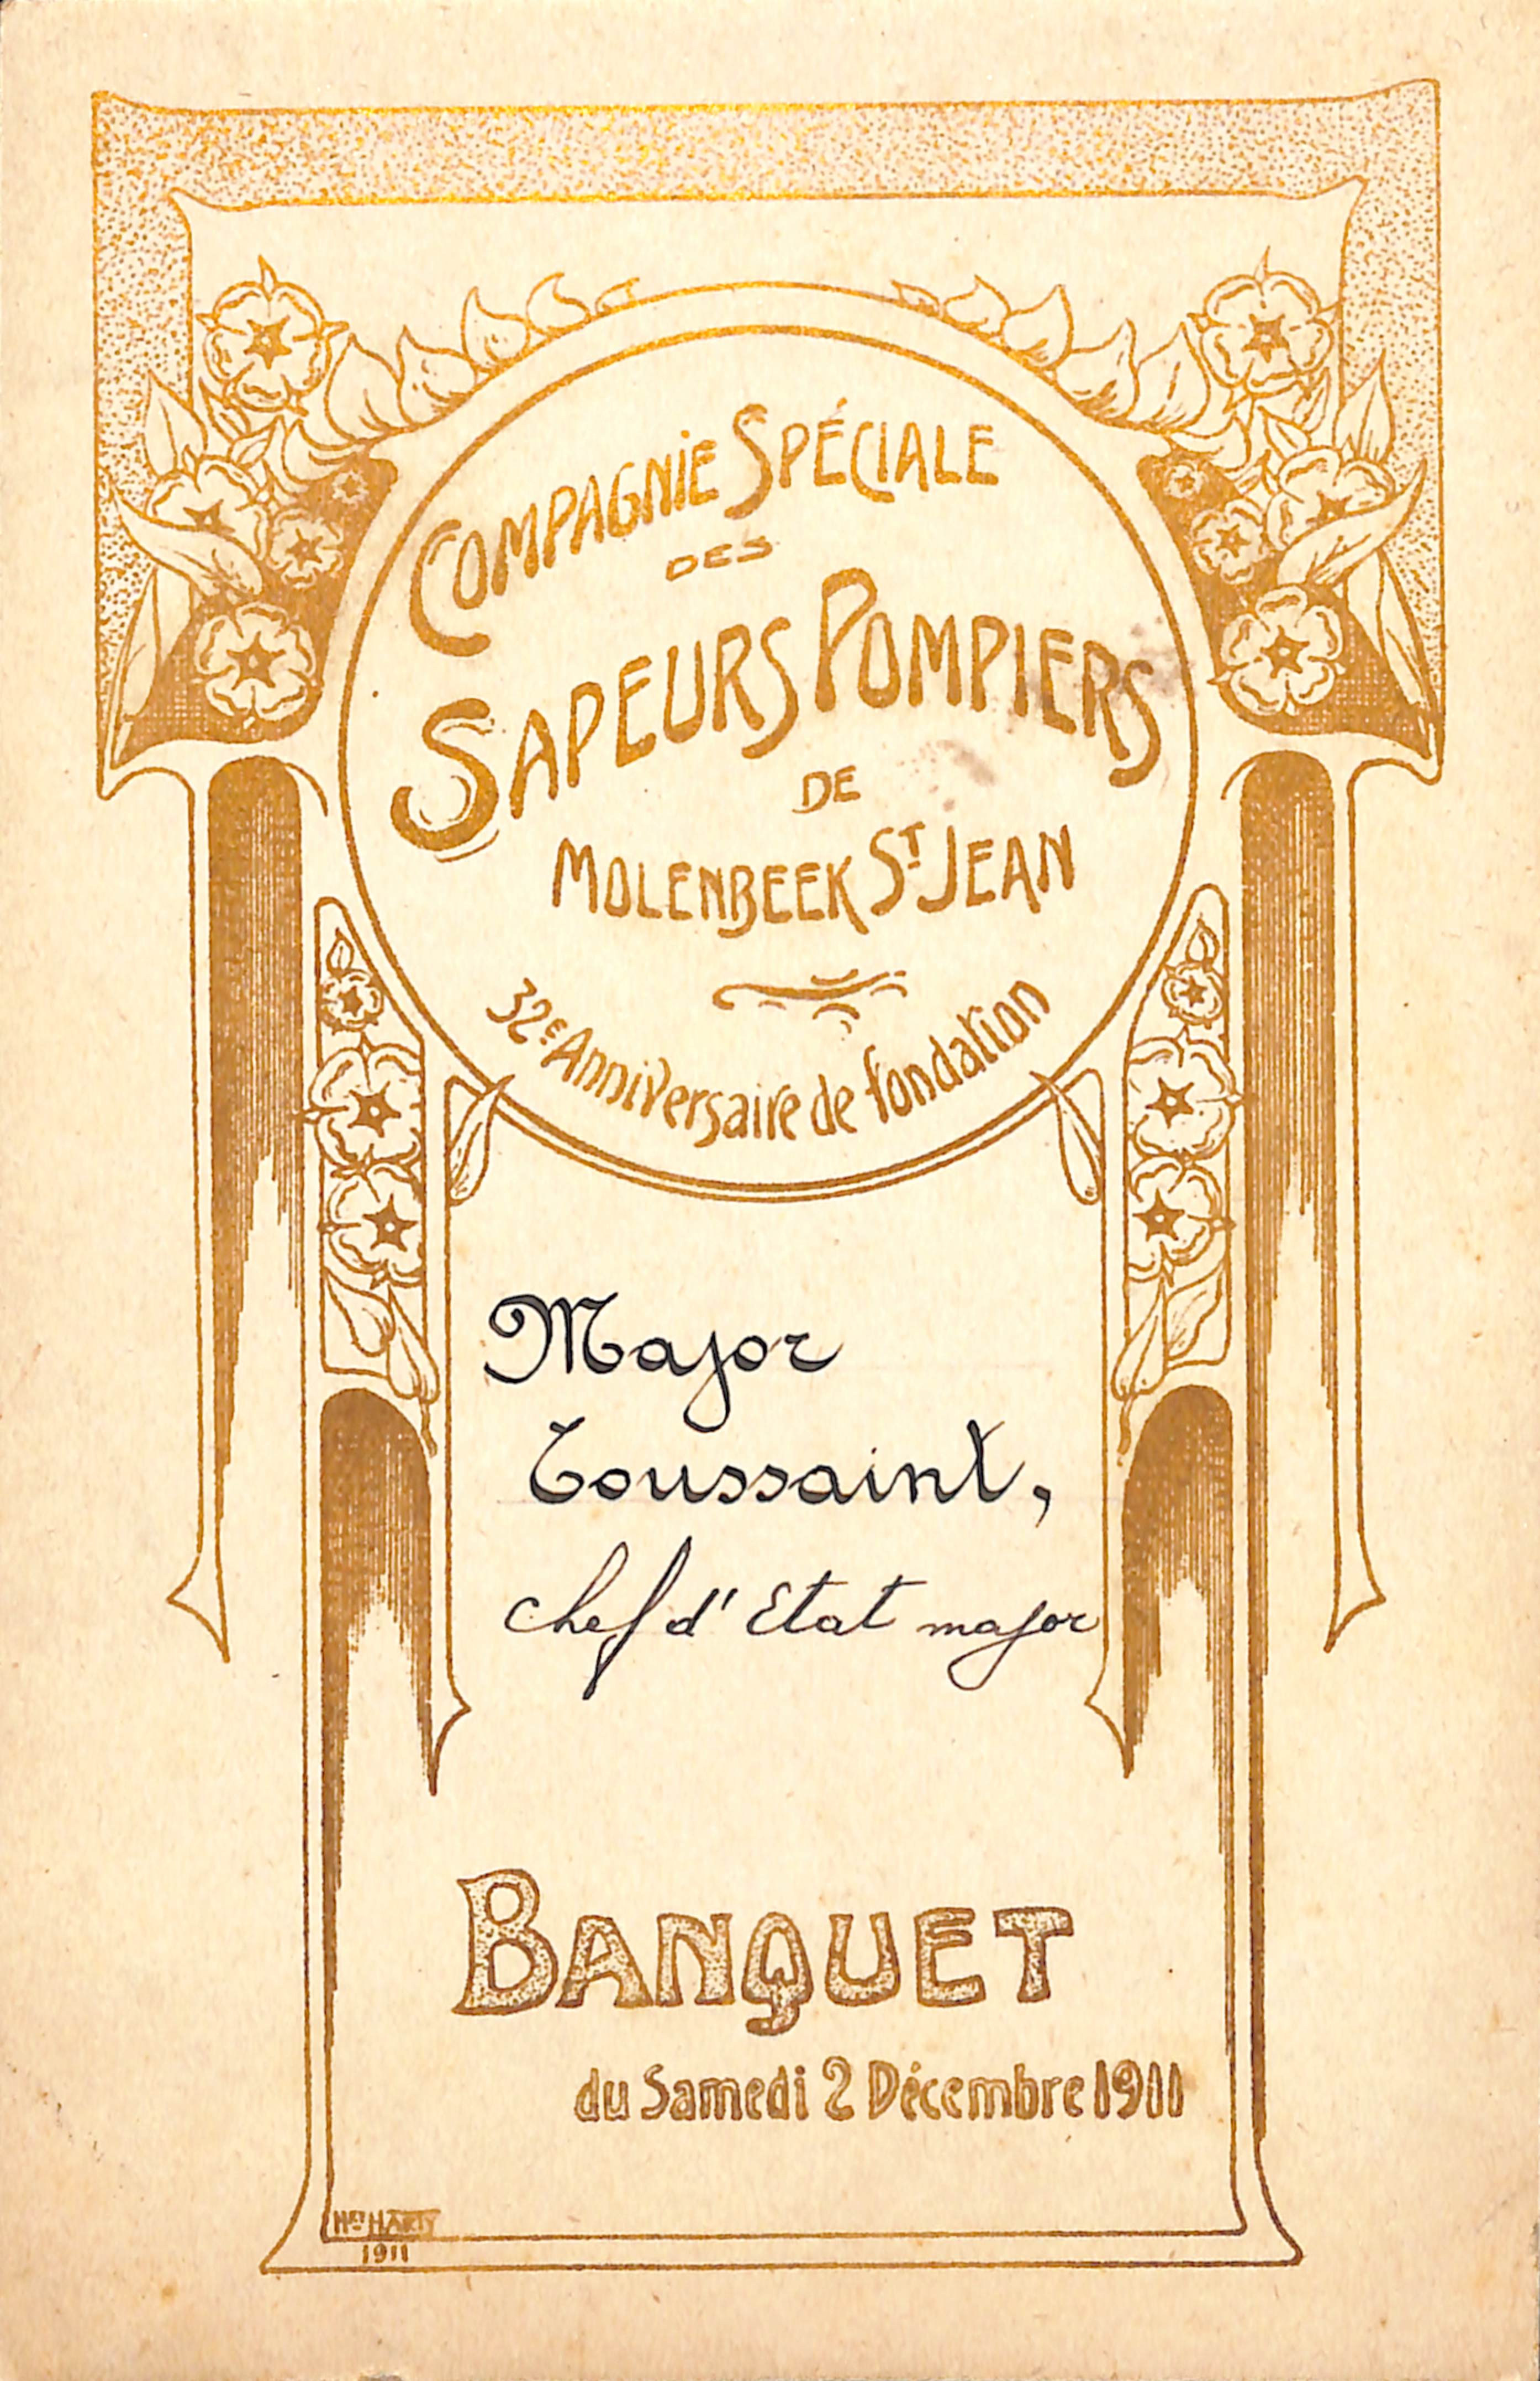 COMPAGNIE SPÉCIALE
DES
SAPEURS POMPIERS
DE
MOLENBEEK ST JEAN
32E Anniversaire de fondation
Major
Toussaint,
chef d'Etat major
BANQUET
du Samedi 2 Décembre 1911
HARTY
1911